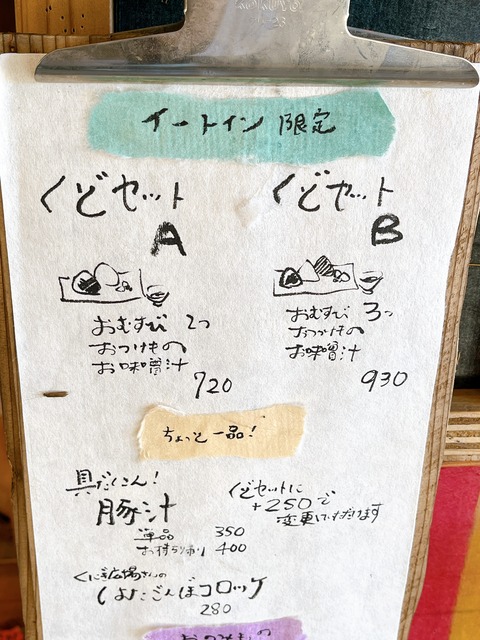 イートイン 限定
くどセット
A
おむすび 2つ
おつけもの
お味噌汁
720
くどセット
B
おむすび 3つ
おつけもの
お味噌汁
930
ちょっと一品!
具だくさん!
豚汁
単品 350
お持ち帰り 400
くどセットに
+250で
変更いただけます
コロッケ
280